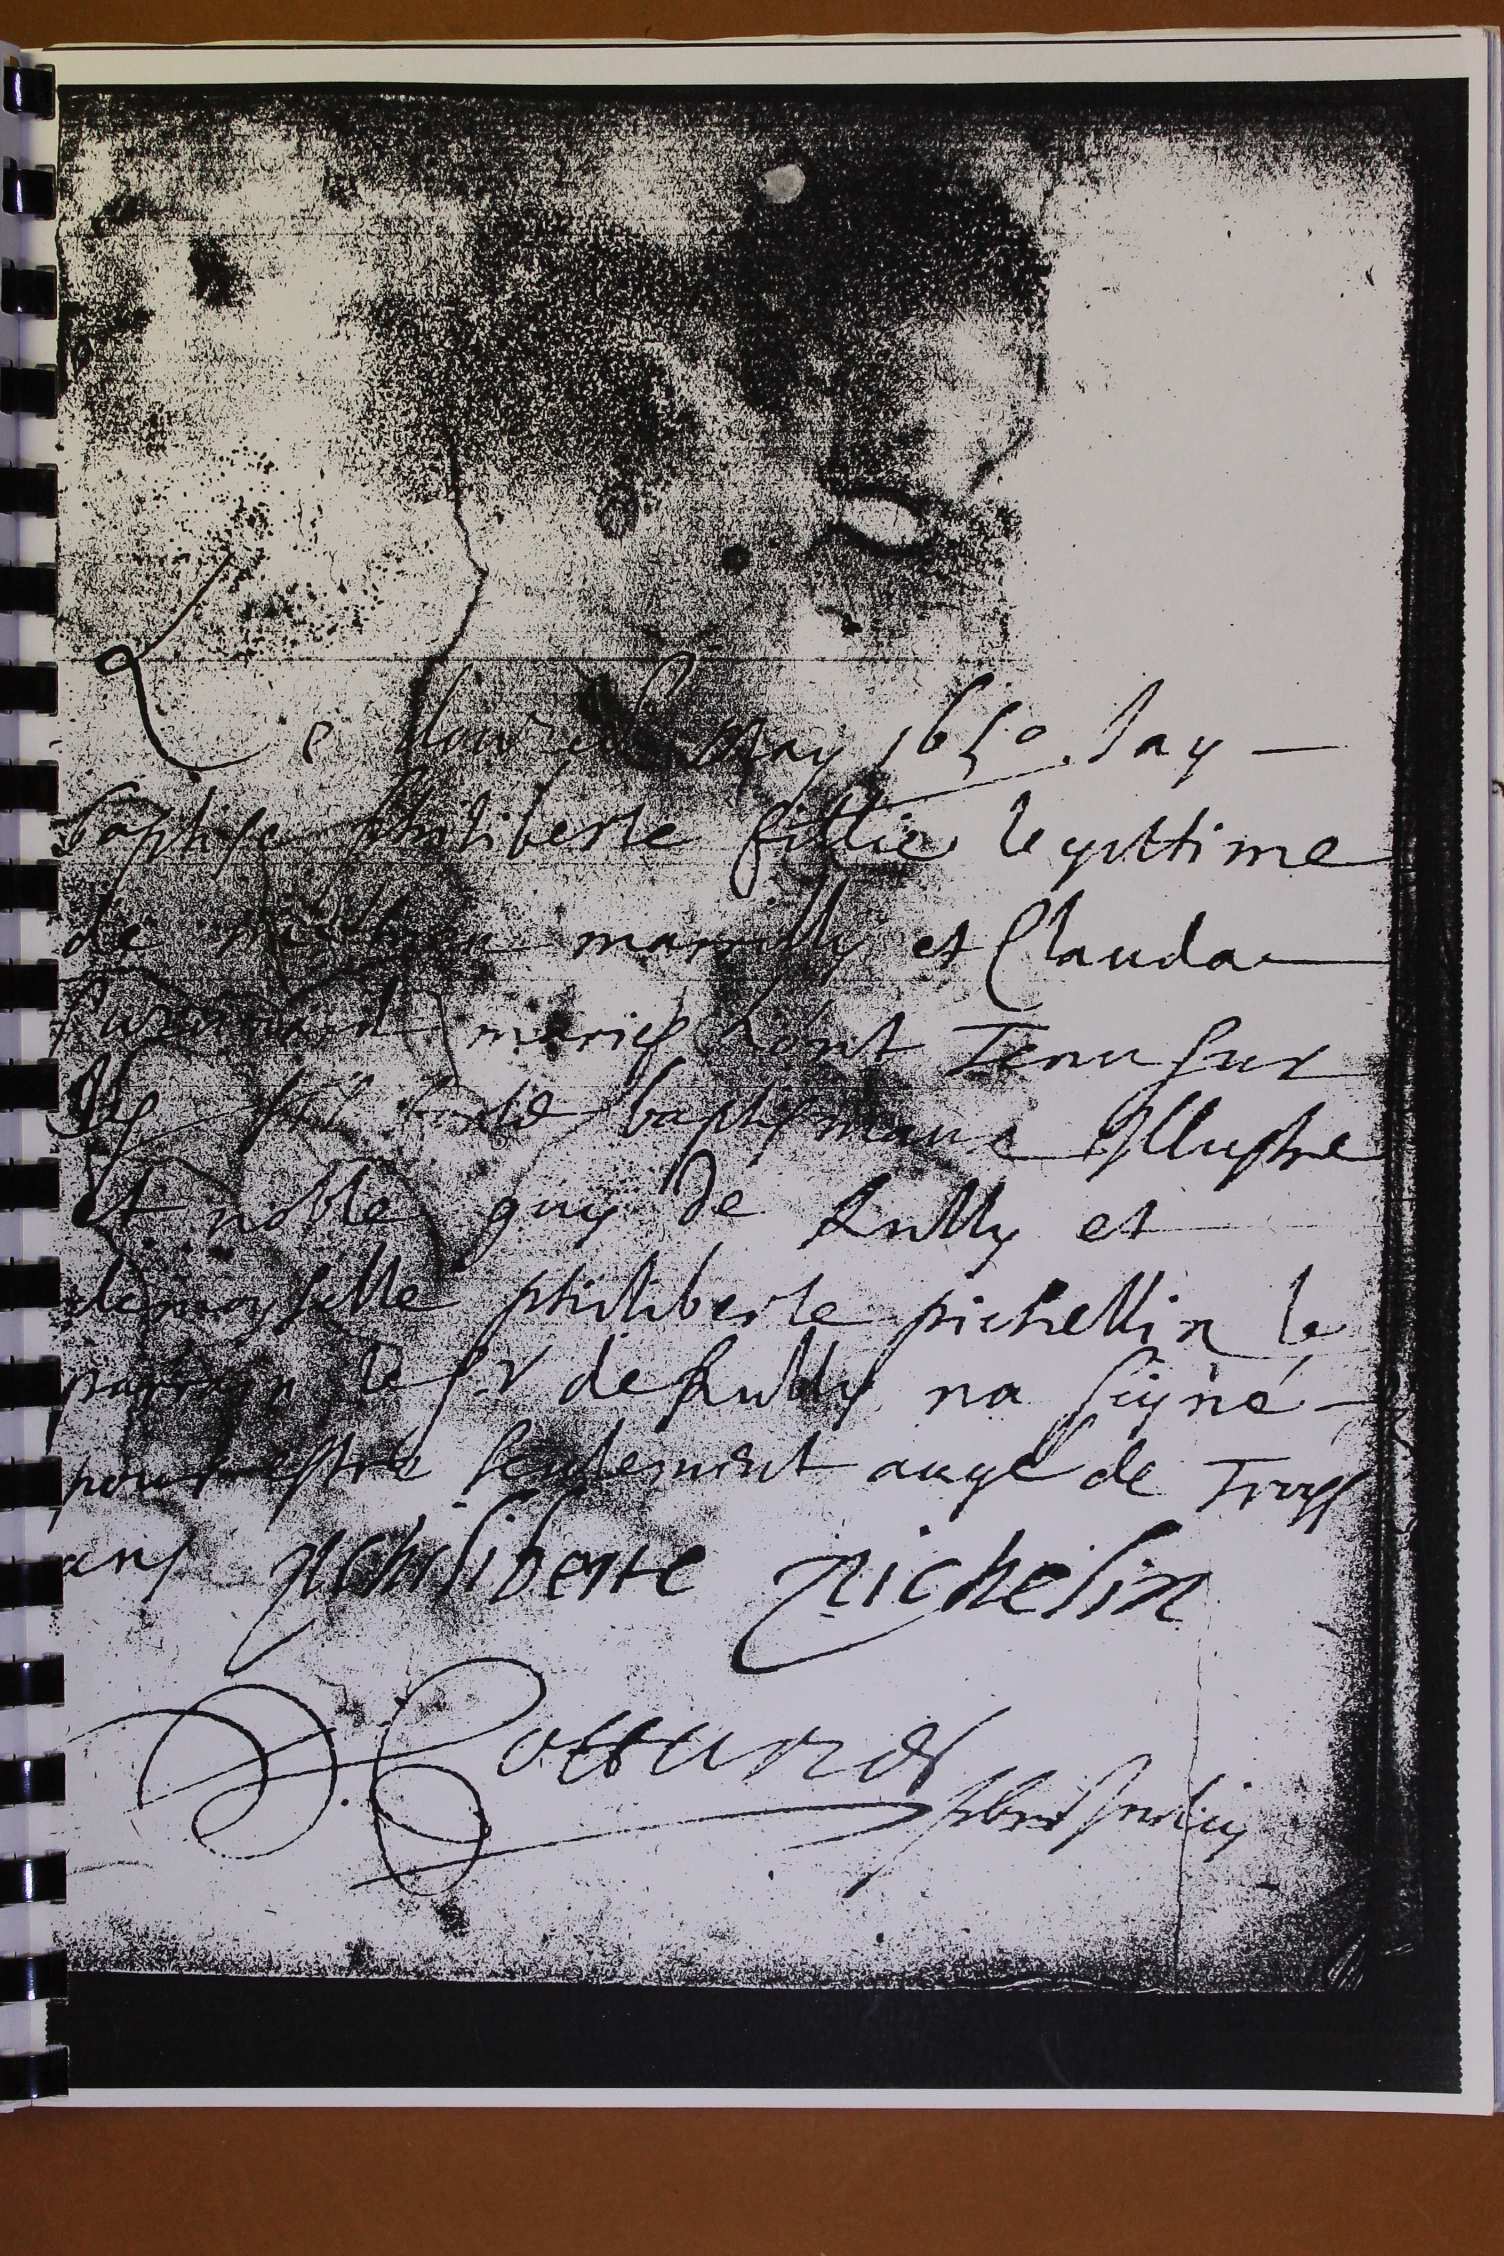 Le douze de may 1650 Jay
baptise philiberte fillie legittime
de mathieu marrilly et Clauda
mariés Lont Tenu sur
les baptismaux Illustre
et noble guy de Rully et
demoyselle philiberte pichellin le
parrain le Sr de Rully na signé
pour estre seulement augé de Troys
ans philiberte pichelin
Cottarde